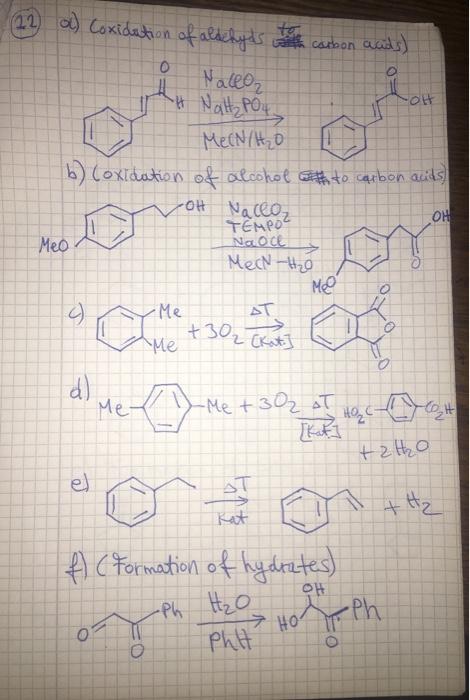 22) a) (oxidation of aldehyds to carbon acids)
O
H
NaClO2
NaH2PO4
MeCN/H2O
O
OH
b) (oxidation of alcohol to carbon acids)
OH
MeO
NaClO2
TEMPO
NaOCl
MeCN-H2O
OH
O
MeO
c)
Me
Me
+ 3O2
ΔT
[Kat.]
O
O
O
d)
Me
Me + 3O2
ΔT
[Kat.]
HO2C
CO2H
+ 2 H2O
e)
ΔT
Kat
+ H2
f) (Formation of hydrates)
O
O
Ph
H2O
PhH
OH
HO
Ph
O